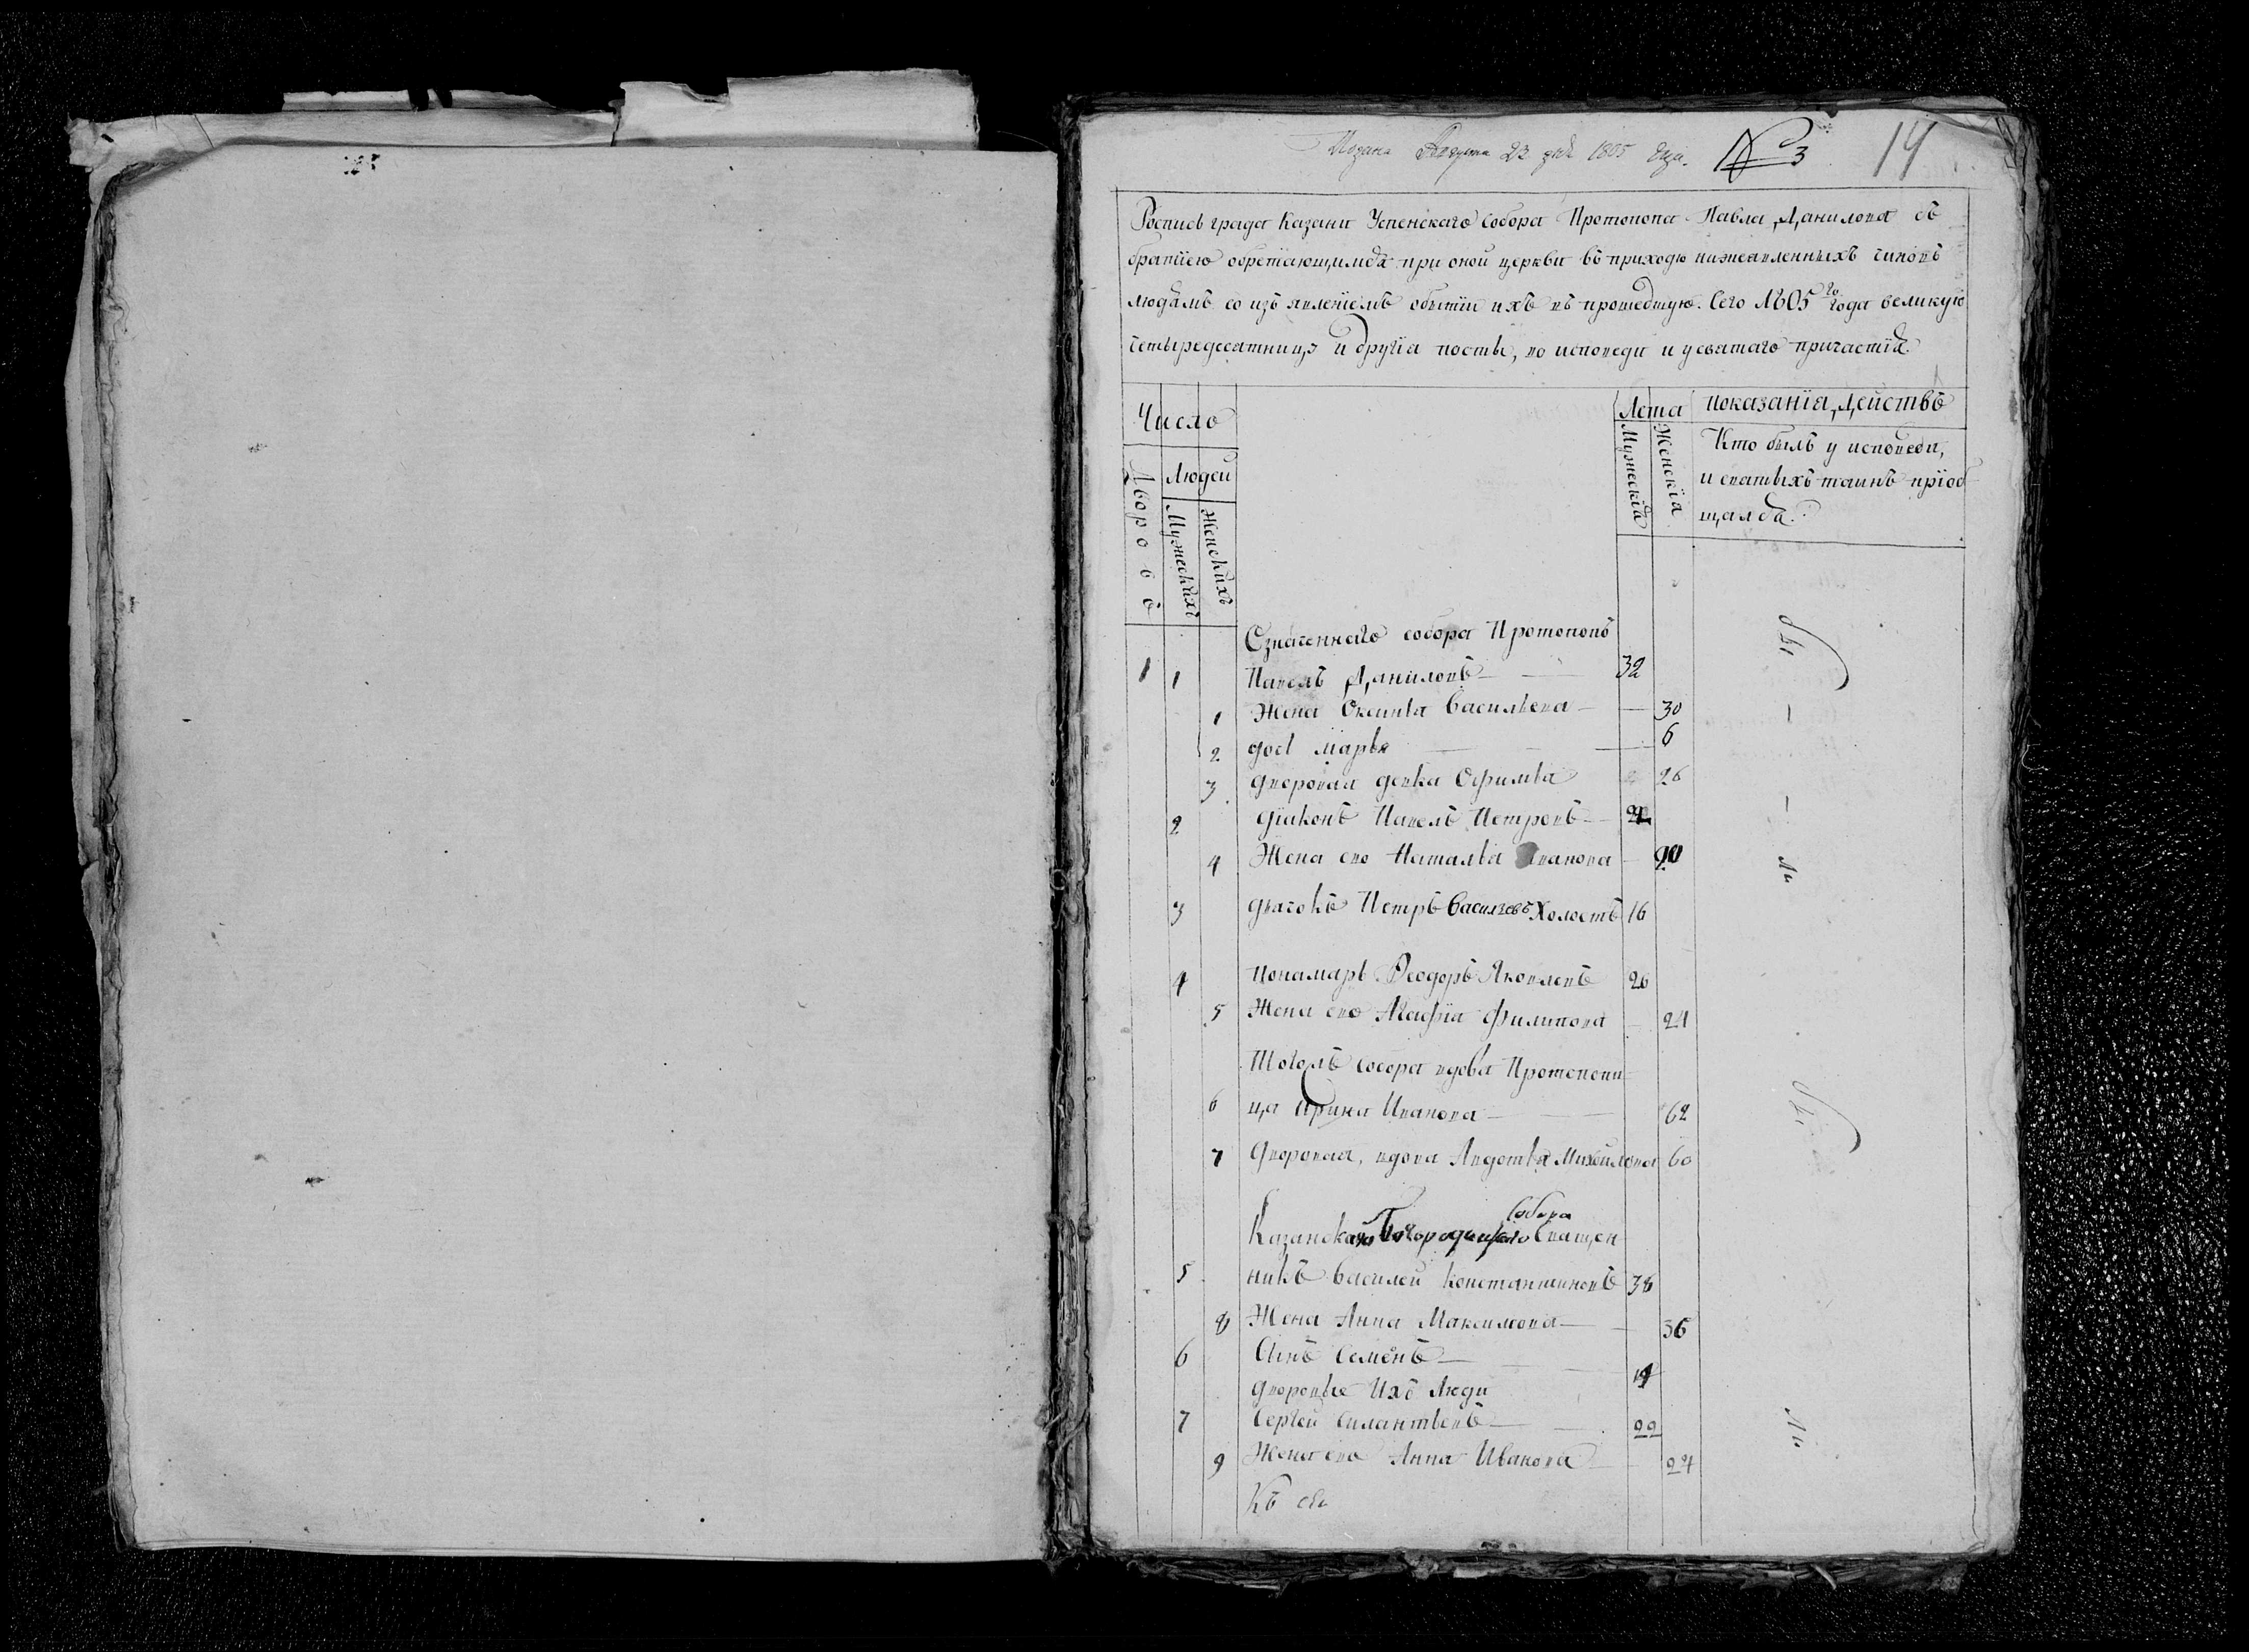 Подана Августа 22 дня 1805 года. № 3 14
Роспись града Казани Успенскаго собора Протопопа Павла Данилова съ
братиею обретающимся при оной церкви въ приходе нижеявленныхъ чиновъ
людямъ со изъявлениемъ о бытии ихъ въ прошедшую. Сего 1805 го года великую
четыредесятницу и другїа посты, во исповеди и у святаго причастїя.
Число
Лета
показанїа, действъ
Дворовъ
Людей
Мужескихъ
Женскихъ
Мужескїя
Женскїа
Кто былъ у исповеди,
и святыхъ таинъ прїоб
щался.
Означеннаго собора Протопопъ
1 1 Павелъ Даниловъ 32
1 Жена Оксинья Васильева 30
2 доч Марья 6
3 дворовая девка Офимья 26
2 дїаконъ Павелъ Петровъ
4 Жена ево Наталья Иванова
3 дьячокъ Петръ Васильевъ Холостъ 16
4 понамарь Ѳеодоръ Яковлевъ 26
5 Жена ево Агафїа Филипова 24
Тогожъ собора вдова Протопопи
6 ца Ирина Иванова 62
7 Дворовая, вдова Авдотья Михайлова 60
Собора
Казанскаго Богородицкаго Священ
5 никъ Василей Константиновъ 38
8 Жена Анна Максимова 36
6 Сынъ Семёнъ
дворовые Ихъ Люди
7 Сергей Силантьевъ 22
9 Жена ево Анна Иванова 24